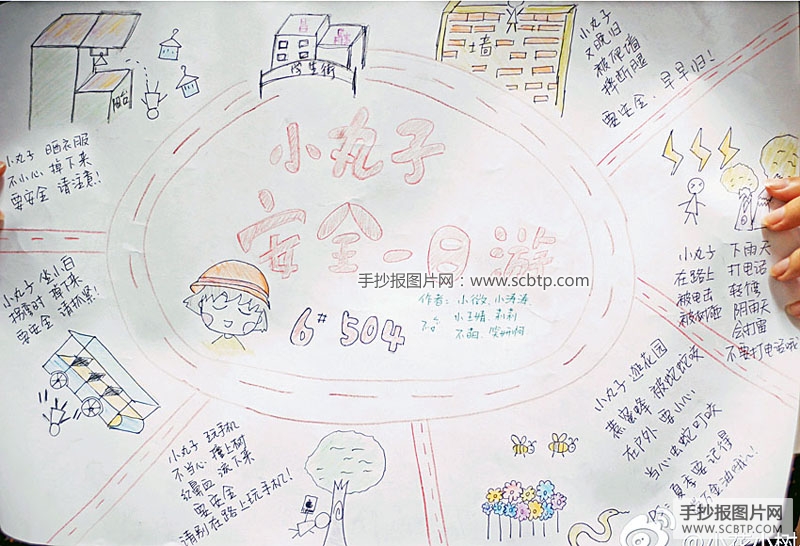 小丸子
安全一日游
6# 504
作者: 小微、小涛涛
手抄报图片网: www.scbtp.com
学生街
墙
阳台
小丸子
又晚归
被爬墙
摔断腿
要安全、早早归!
小丸子 晒衣服
不小心 掉下来
要安全 请注意!
小丸子 坐小白
拐弯时 掉下来
要安全 请抓紧!
小丸子 玩手机
不当心 撞上树
红鼻血 流下来
要安全
请别在路上玩手机!
小丸子 逛花园
惹蜜蜂 被蛇蛇咬
在户外 要小心
当心虫蛇叮咬
夏季要记得
小丸子 下雨天
在路上 打电话
被电击
阴雨天
会打雷
不要打电话哦
手抄报图片网
WWW.SCBTP.COM